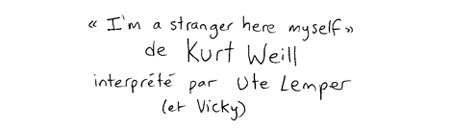 « I'm a stranger here myself »
de Kurt Weill
interprété par Ute Lemper
(et Vicky)